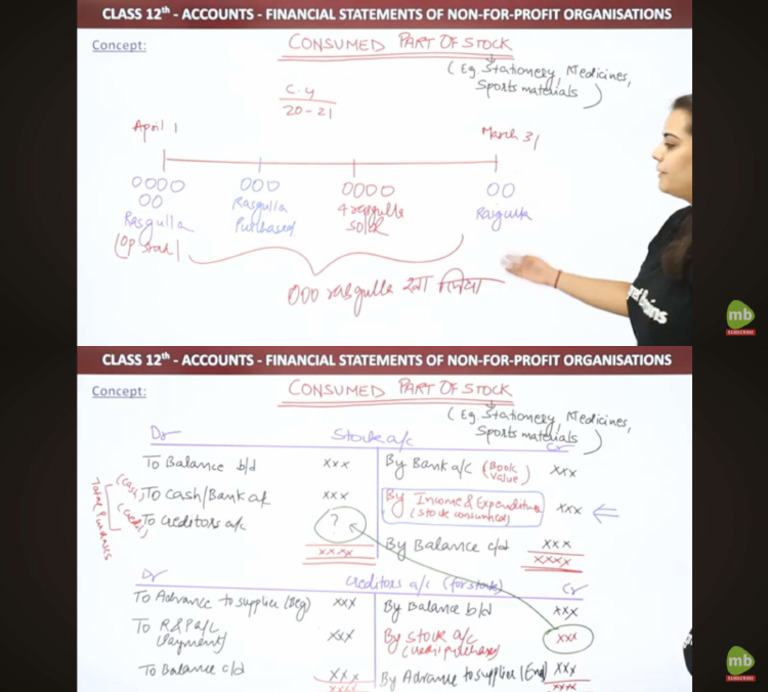 CLASS 12th - ACCOUNTS - FINANCIAL STATEMENTS OF NON-FOR-PROFIT ORGANISATIONS
Concept:
CONSUMED PART OF STOCK
(Eg. Stationery, Medicines,
Sports materials)
C.Y
20-21
April 1
March 31
Rasgulla
(Op stock)
Rasgulla
Purchased
4 rasgulla
sold
Rasgulla
000 rasgulla खा लिया
mb
SUBSCRIBE
CLASS 12th - ACCOUNTS - FINANCIAL STATEMENTS OF NON-FOR-PROFIT ORGANISATIONS
Concept:
CONSUMED PART OF STOCK
(Eg. Stationery, Medicines,
Sports materials)
Dr Stock a/c Cr
To Balance b/d xxx By Bank a/c (Book Value) xxx
(Cash) To Cash/Bank a/c xxx By Income & Expenditure (stock consumed) xxx
(Credit) To Creditors a/c ? By Balance c/d xxx
Total Purchases
xxxx xxxx
Dr Creditors a/c (for stock) Cr
To Advance to supplier (Beg) xxx By Balance b/d xxx
To R&P a/c (Payment) xxx By Stock a/c (credit purchases) xxx
To Balance c/d xxx By Advance to supplier (End) xxx
xxxx xxxx
mb
SUBSCRIBE